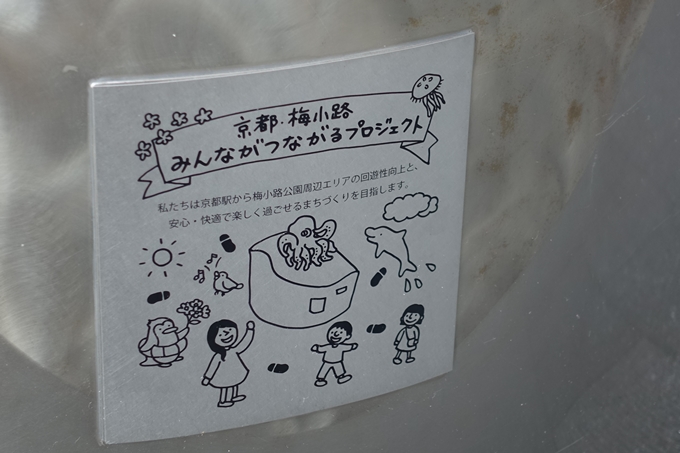 京都・梅小路
みんながつながるプロジェクト
私たちは京都駅から梅小路公園周辺エリアの回遊性向上と、
安心・快適で楽しく過ごせるまちづくりを目指します。